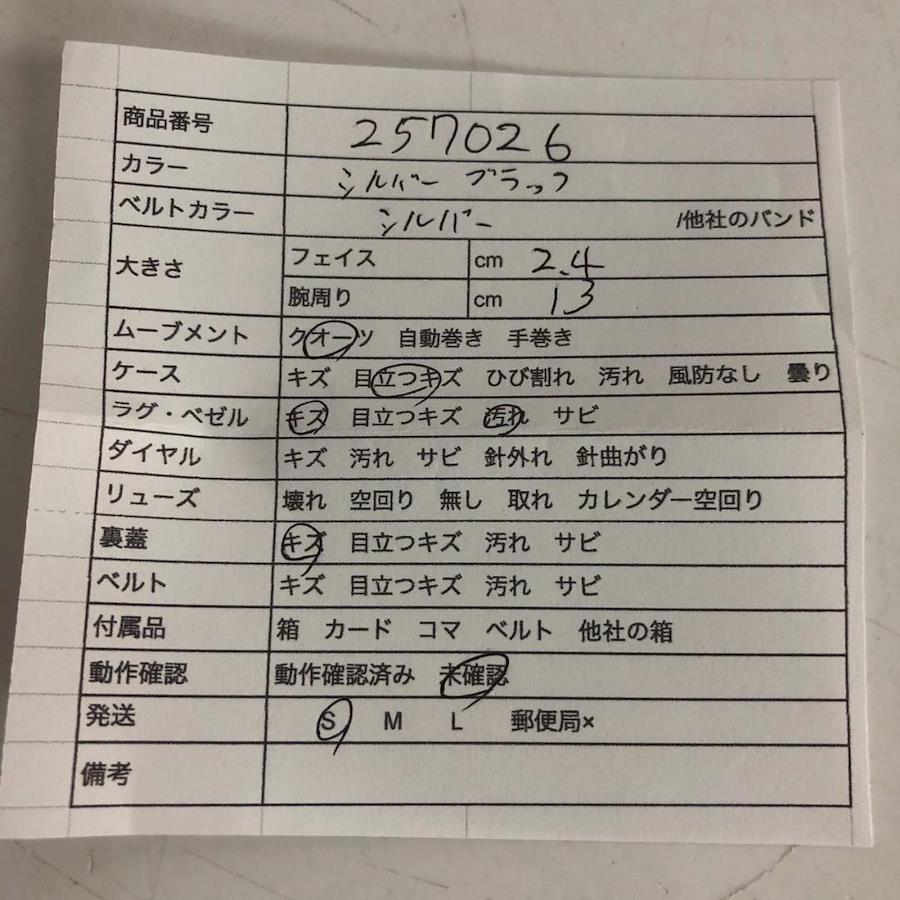 商品番号 257026
カラー シルバー ブラック
ベルトカラー シルバー /他社のバンド
大きさ フェイス cm 2.4
腕周り cm 13
ムーブメント クオーツ 自動巻き 手巻き
ケース キズ 目立つキズ ひび割れ 汚れ 風防なし 曇り
ラグ・ベゼル キズ 目立つキズ 汚れ サビ
ダイヤル キズ 汚れ サビ 針外れ 針曲がり
リューズ 壊れ 空回り 無し 取れ カレンダー空回り
裏蓋 キズ 目立つキズ 汚れ サビ
ベルト キズ 目立つキズ 汚れ サビ
付属品 箱 カード コマ ベルト 他社の箱
動作確認 動作確認済み 未確認
発送 S M L 郵便局×
備考